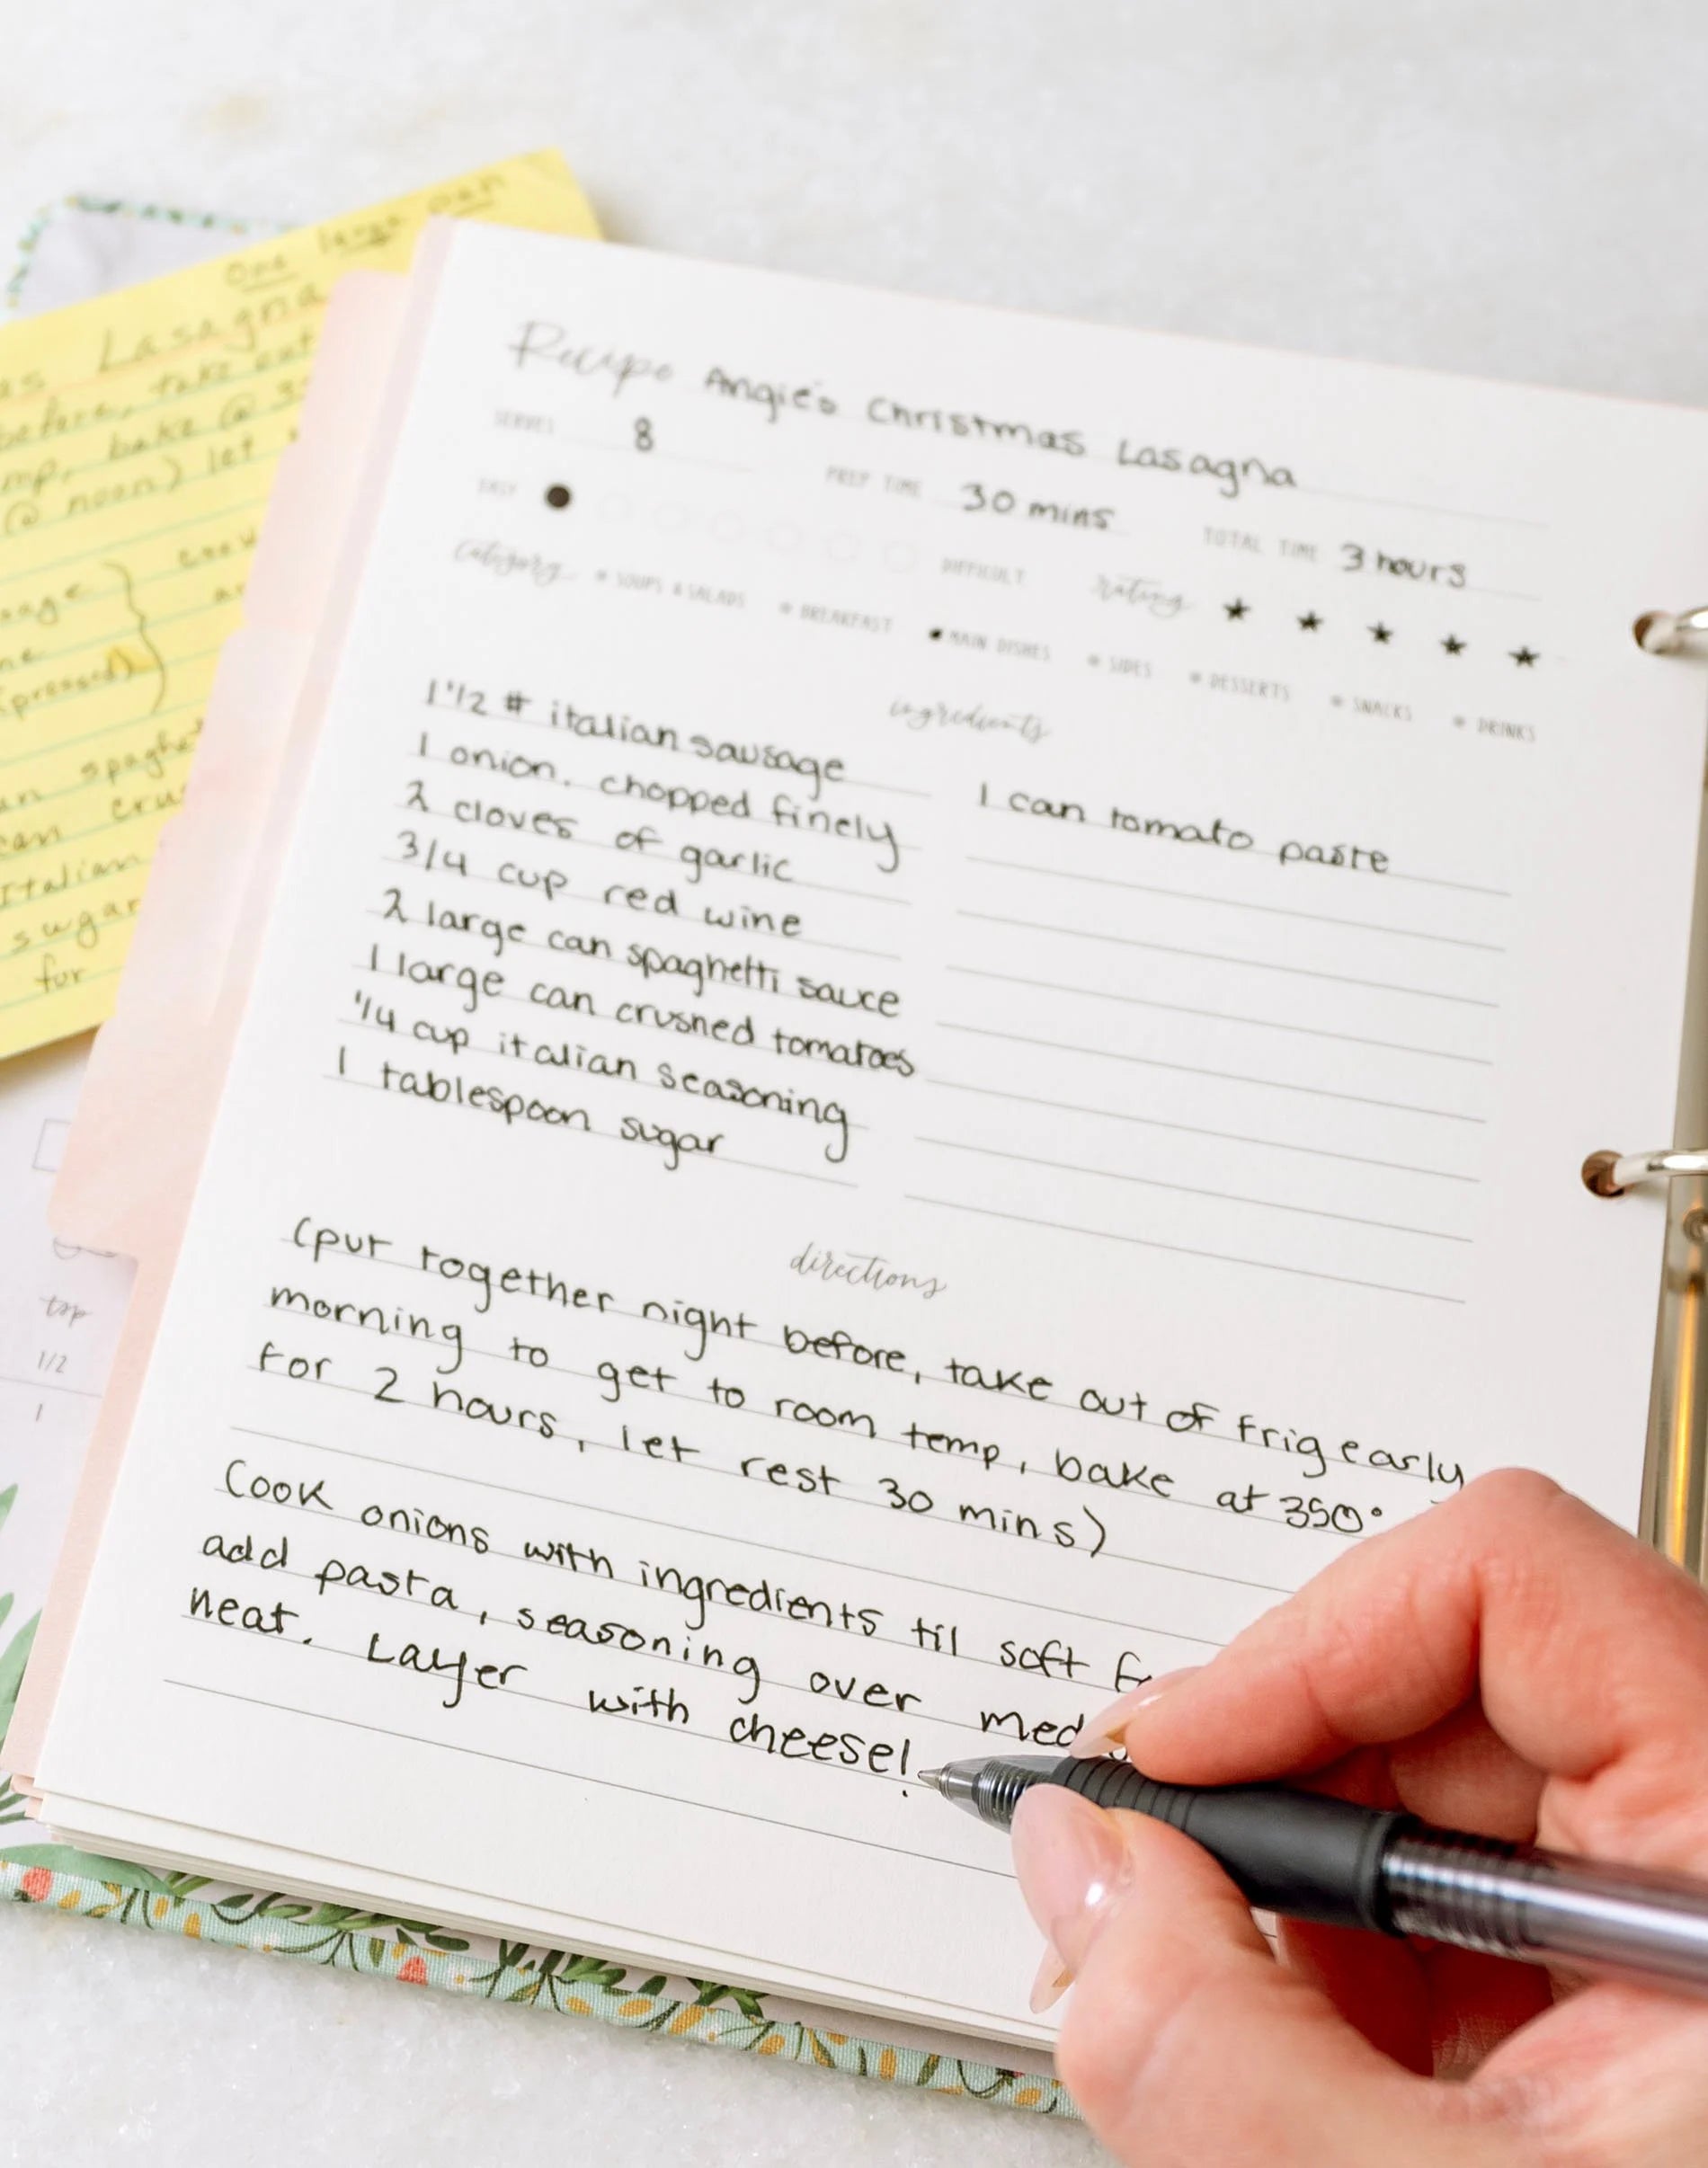 One large pan
as Lasagna
before, take out
mp, bake @ 3
@ noon) let
age
ne
(pressed)
an spaghe
can crus
Italian
sugar
for
top
1/2
1
Recipe Angie's Christmas Lasagna
SERVES 8 PREP TIME 30 mins TOTAL TIME 3 hours
EASY DIFFICULT rating ★ ★ ★ ★ ★
category SOUPS & SALADS BREAKFAST MAIN DISHES SIDES DESSERTS SNACKS DRINKS
ingredients
1 1/2 # italian sausage
1 onion. chopped finely
2 cloves of garlic
3/4 cup red wine
2 large can spaghetti sauce
1 large can crushed tomatoes
1/4 cup italian seasoning
1 tablespoon sugar
1 can tomato paste
directions
(put together night before, take out of frig early
morning to get to room temp, bake at 350°
for 2 hours, let rest 30 mins)
Cook onions with ingredients til soft
add pasta, seasoning over med
heat. Layer with cheese!